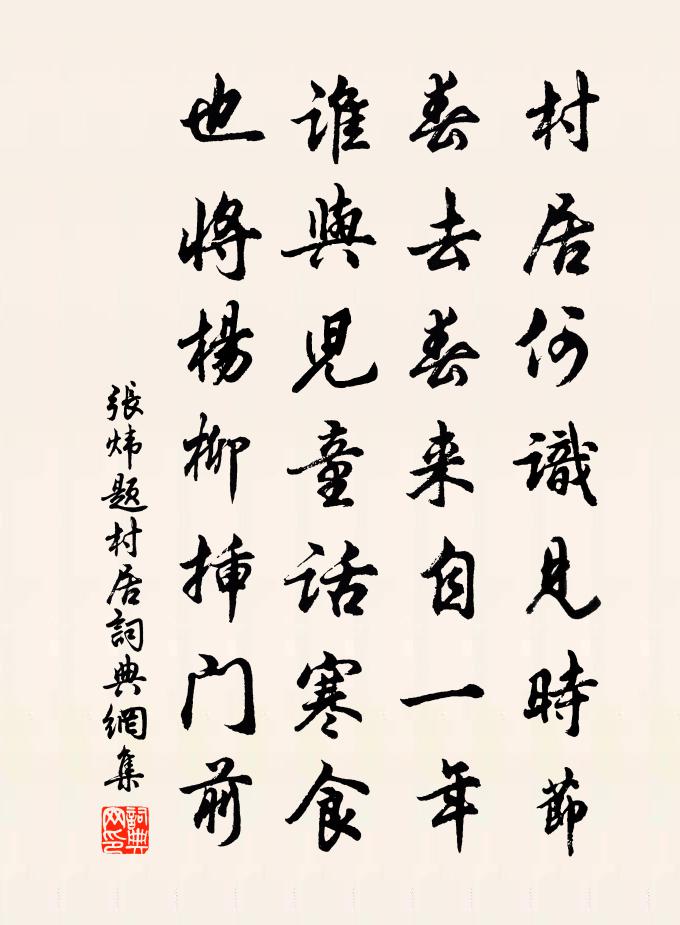 村居何識見時節
春去春来自一年
誰與兒童話寒食
也將楊柳挿門前
張煒題村居詞典網集
詞典網印